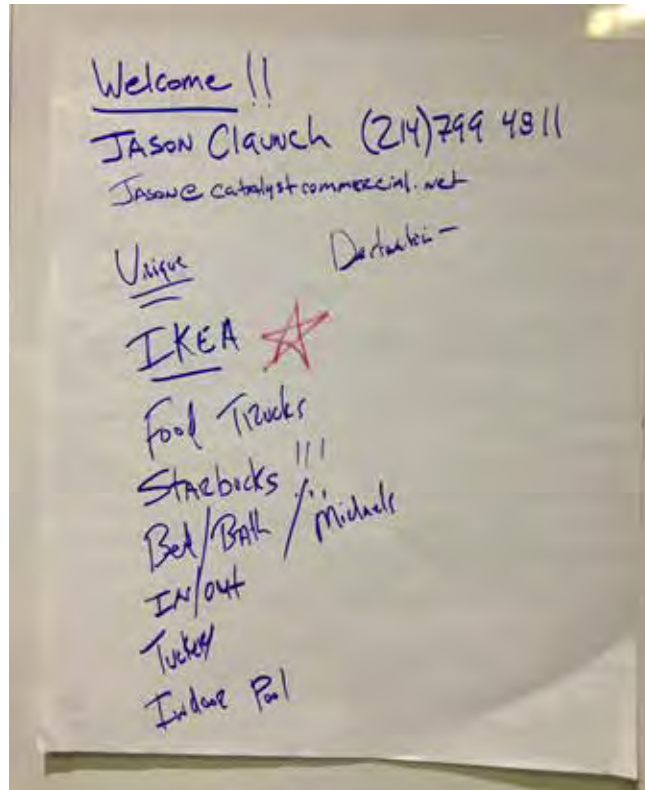 Welcome !!
JASON Claunch (214)799 4811
JASON@catalystcommercial.net
Unique Destination -
IKEA
Food Trucks
Starbucks !!!
Bed/Bath / Michaels
IN/out
Indoor Pool